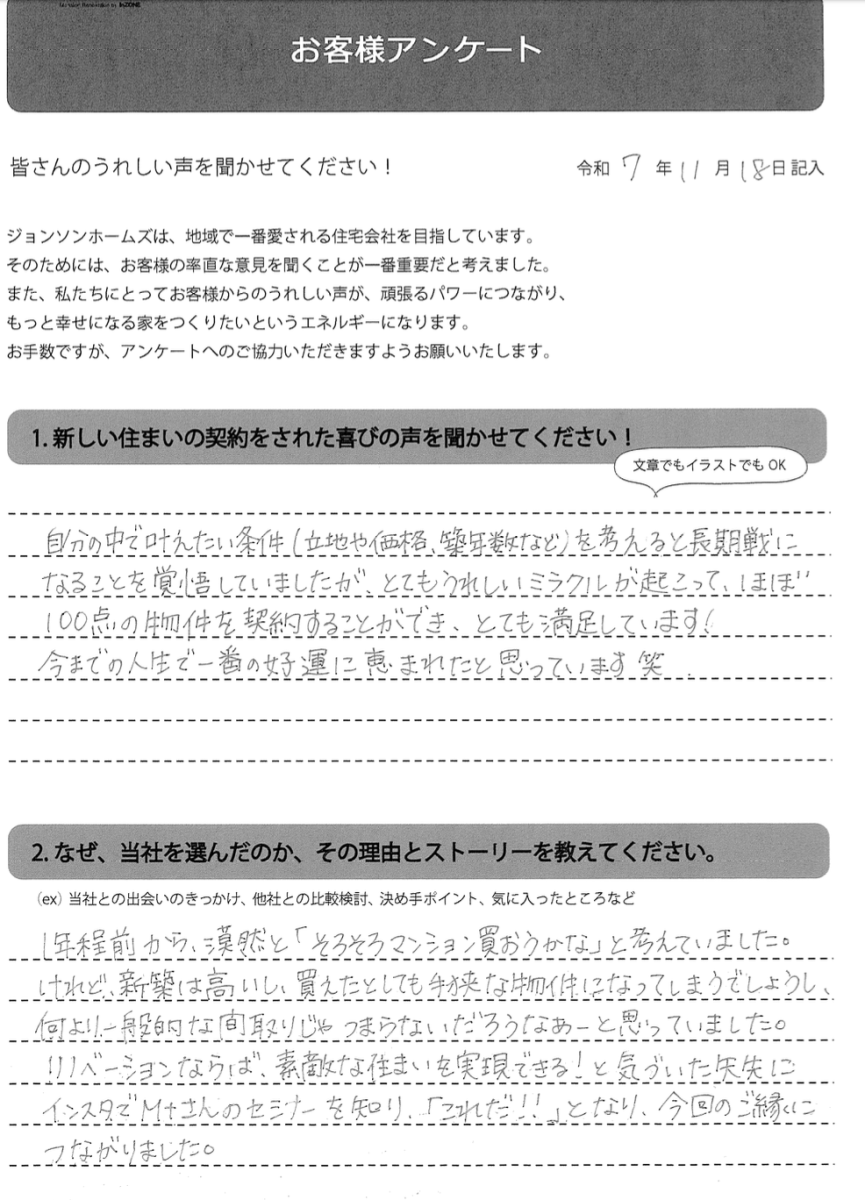 お客様アンケート
皆さんのうれしい声を聞かせてください！
令和 7 年 11 月 18 日 記入
ジョンソンホームズは、地域で一番愛される住宅会社を目指しています。
そのためには、お客様の率直な意見を聞くことが一番重要だと考えました。
また、私たちにとってお客様からのうれしい声が、頑張るパワーにつながり、
もっと幸せになる家をつくりたいというエネルギーになります。
お手数ですが、アンケートへのご協力いただきますようお願いいたします。
1. 新しい住まいの契約をされた喜びの声を聞かせてください！
文章でもイラストでも OK
自分の中で叶えたい条件（立地や価格、築年数など）を考えると長期戦に
なることを覚悟していましたが、とてもうれしいミラクルが起こって、ほぼ
100点の物件を契約することができ、とても満足しています！
今までの人生で一番の好運に恵まれたと思っています笑
2. なぜ、当社を選んだのか、その理由とストーリーを教えてください。
（ex）当社との出会いのきっかけ、他社との比較検討、決め手ポイント、気に入ったところなど
1年程前から、漠然と「そろそろマンション買おうかな」と考えていました。
けれど、新築は高いし、買えたとしても手狭な物件になってしまうでしょうし、
何より一般的な間取りじゃつまらないだろうなぁーと思っていました。
リノベーションならば、素敵な住まいを実現できる！と気づいた矢先に
インスタでM+さんのセミナーを知り、「これだ!!」となり、今回のご縁に
つながりました。